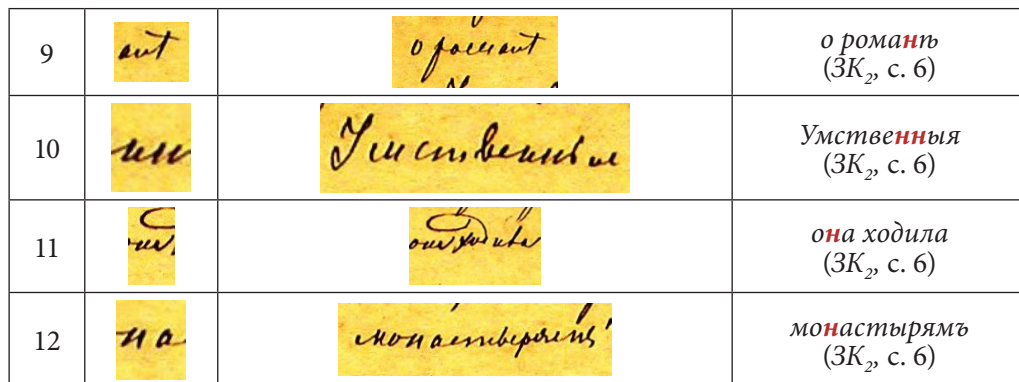 9
о романѣ
о романѣ
(ЗК₂, с. 6)
10
нн
Умственныя
Умственныя
(ЗК₂, с. 6)
11
она
она ходила
она ходила
(ЗК₂, с. 6)
12
на
монастырямъ
монастырямъ
(ЗК₂, с. 6)